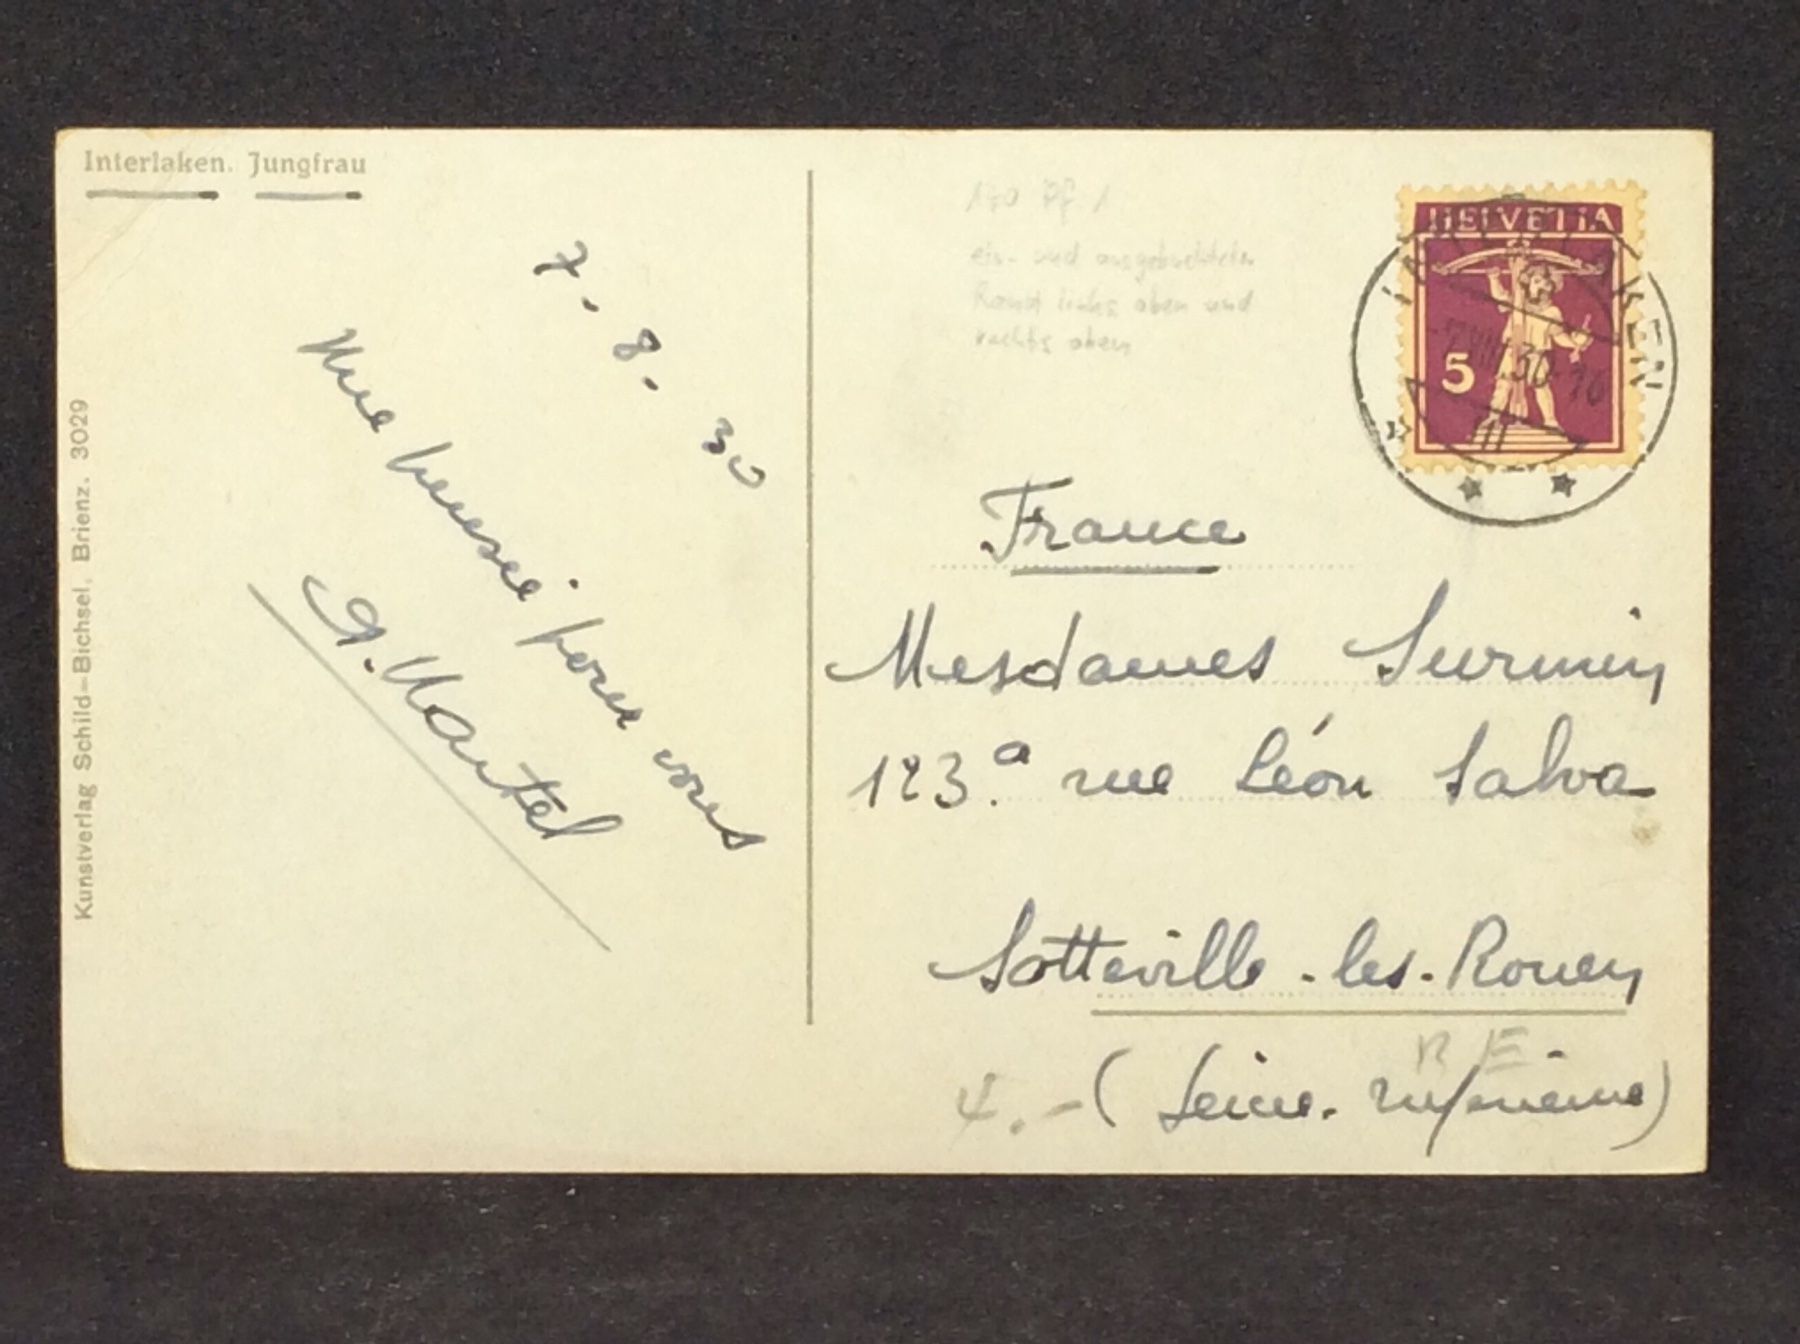 Interlaken. Jungfrau
Kunstverlag Schild-Bichsel, Brienz. 3029
7.8.30
Une pensée pour vous
G. Martel
170 Pf 1
ein- und ausgebuchteter
Rand links oben und
rechts oben
HELVETIA
5
VIII.30
France
Mesdames Surmin
123.a rue Léon Salva
Sotteville-les-Rouen
(Seine-Inférieure)
4.-